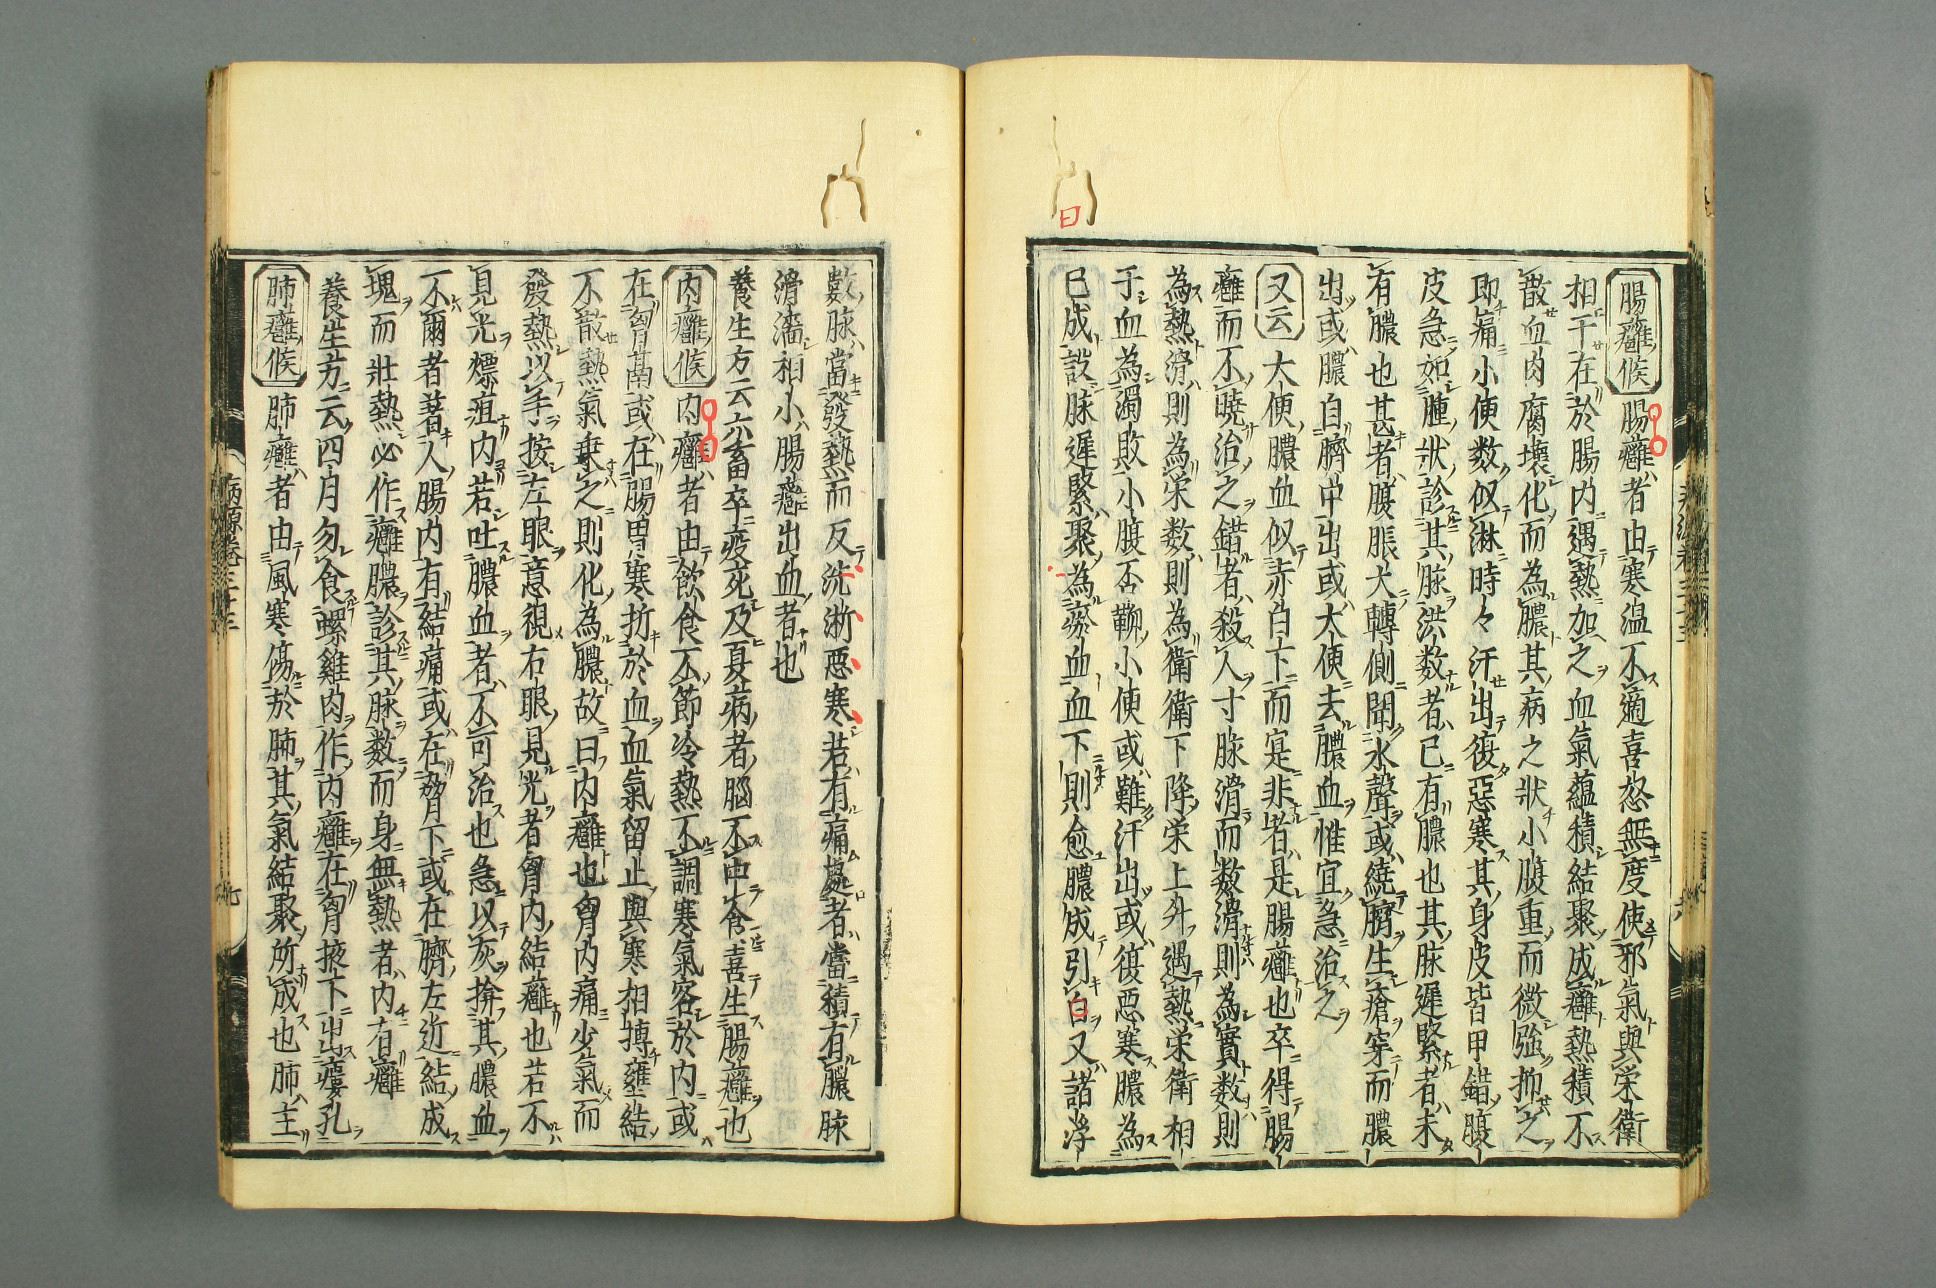 腸癰候 腸癰者由寒温不適喜怒無度使邪氣與栄衛
相干在於腸内遇熱加之血氣蘊積結聚成癰熱積不
散血肉腐壊化而為膿其病之狀小腹重而微強抑之
即痛小便数似淋時々汗出復惡寒其身皮皆甲錯腹
皮急如腫狀診其脉洪数者已有膿也其脉遅緊者未
有膿也甚者腹脹大轉側聞水聲或繞臍生瘡穿而膿
出或膿自臍中出或大便去膿血惟宜急治之
又云 大便膿血似赤白下而寔非者是腸癰也卒得腸
癰而不曉治之錯者殺人寸脉滑而数滑則為實数則
為熱滑則為栄数則為衛衛下降栄上升遇熱栄衛相
干血為濁敗小腹否鞕小便或難汗出或復惡寒膿為
已成設脉遲緊聚為瘀血血下則愈膿成引日又諸浮
數脉當發熱而反洗淅惡寒若有痛處者當積有膿脉
滑濇相小腸癰出血者也
養生方云六畜卒疫死及夏病者腦不中食喜生腸癰也
内癰候 内癰者由飲食不節冷熱不調寒氣客於内或
在胷鬲或在腸胃寒折於血血氣留止與寒相搏壅結
不散熱氣乗之則化為膿故曰内癰也胷内痛少氣而
發熱以手按左眼意視右眼見光者胷内結癰也若不
見光熛疽内若吐膿血者不可治也急以灰揜其膿血
不爾者著人腸内有結痛或在脅下或在臍左近結成
塊而壯熱必作癰膿診其脉数而身無熱者内有癰
養生方云四月勿食螺雞肉作内癰在胷掖下出瘻孔
肺癰候 肺癰者由風寒傷於肺其氣結聚所成也肺主
病源卷三十三
七
日